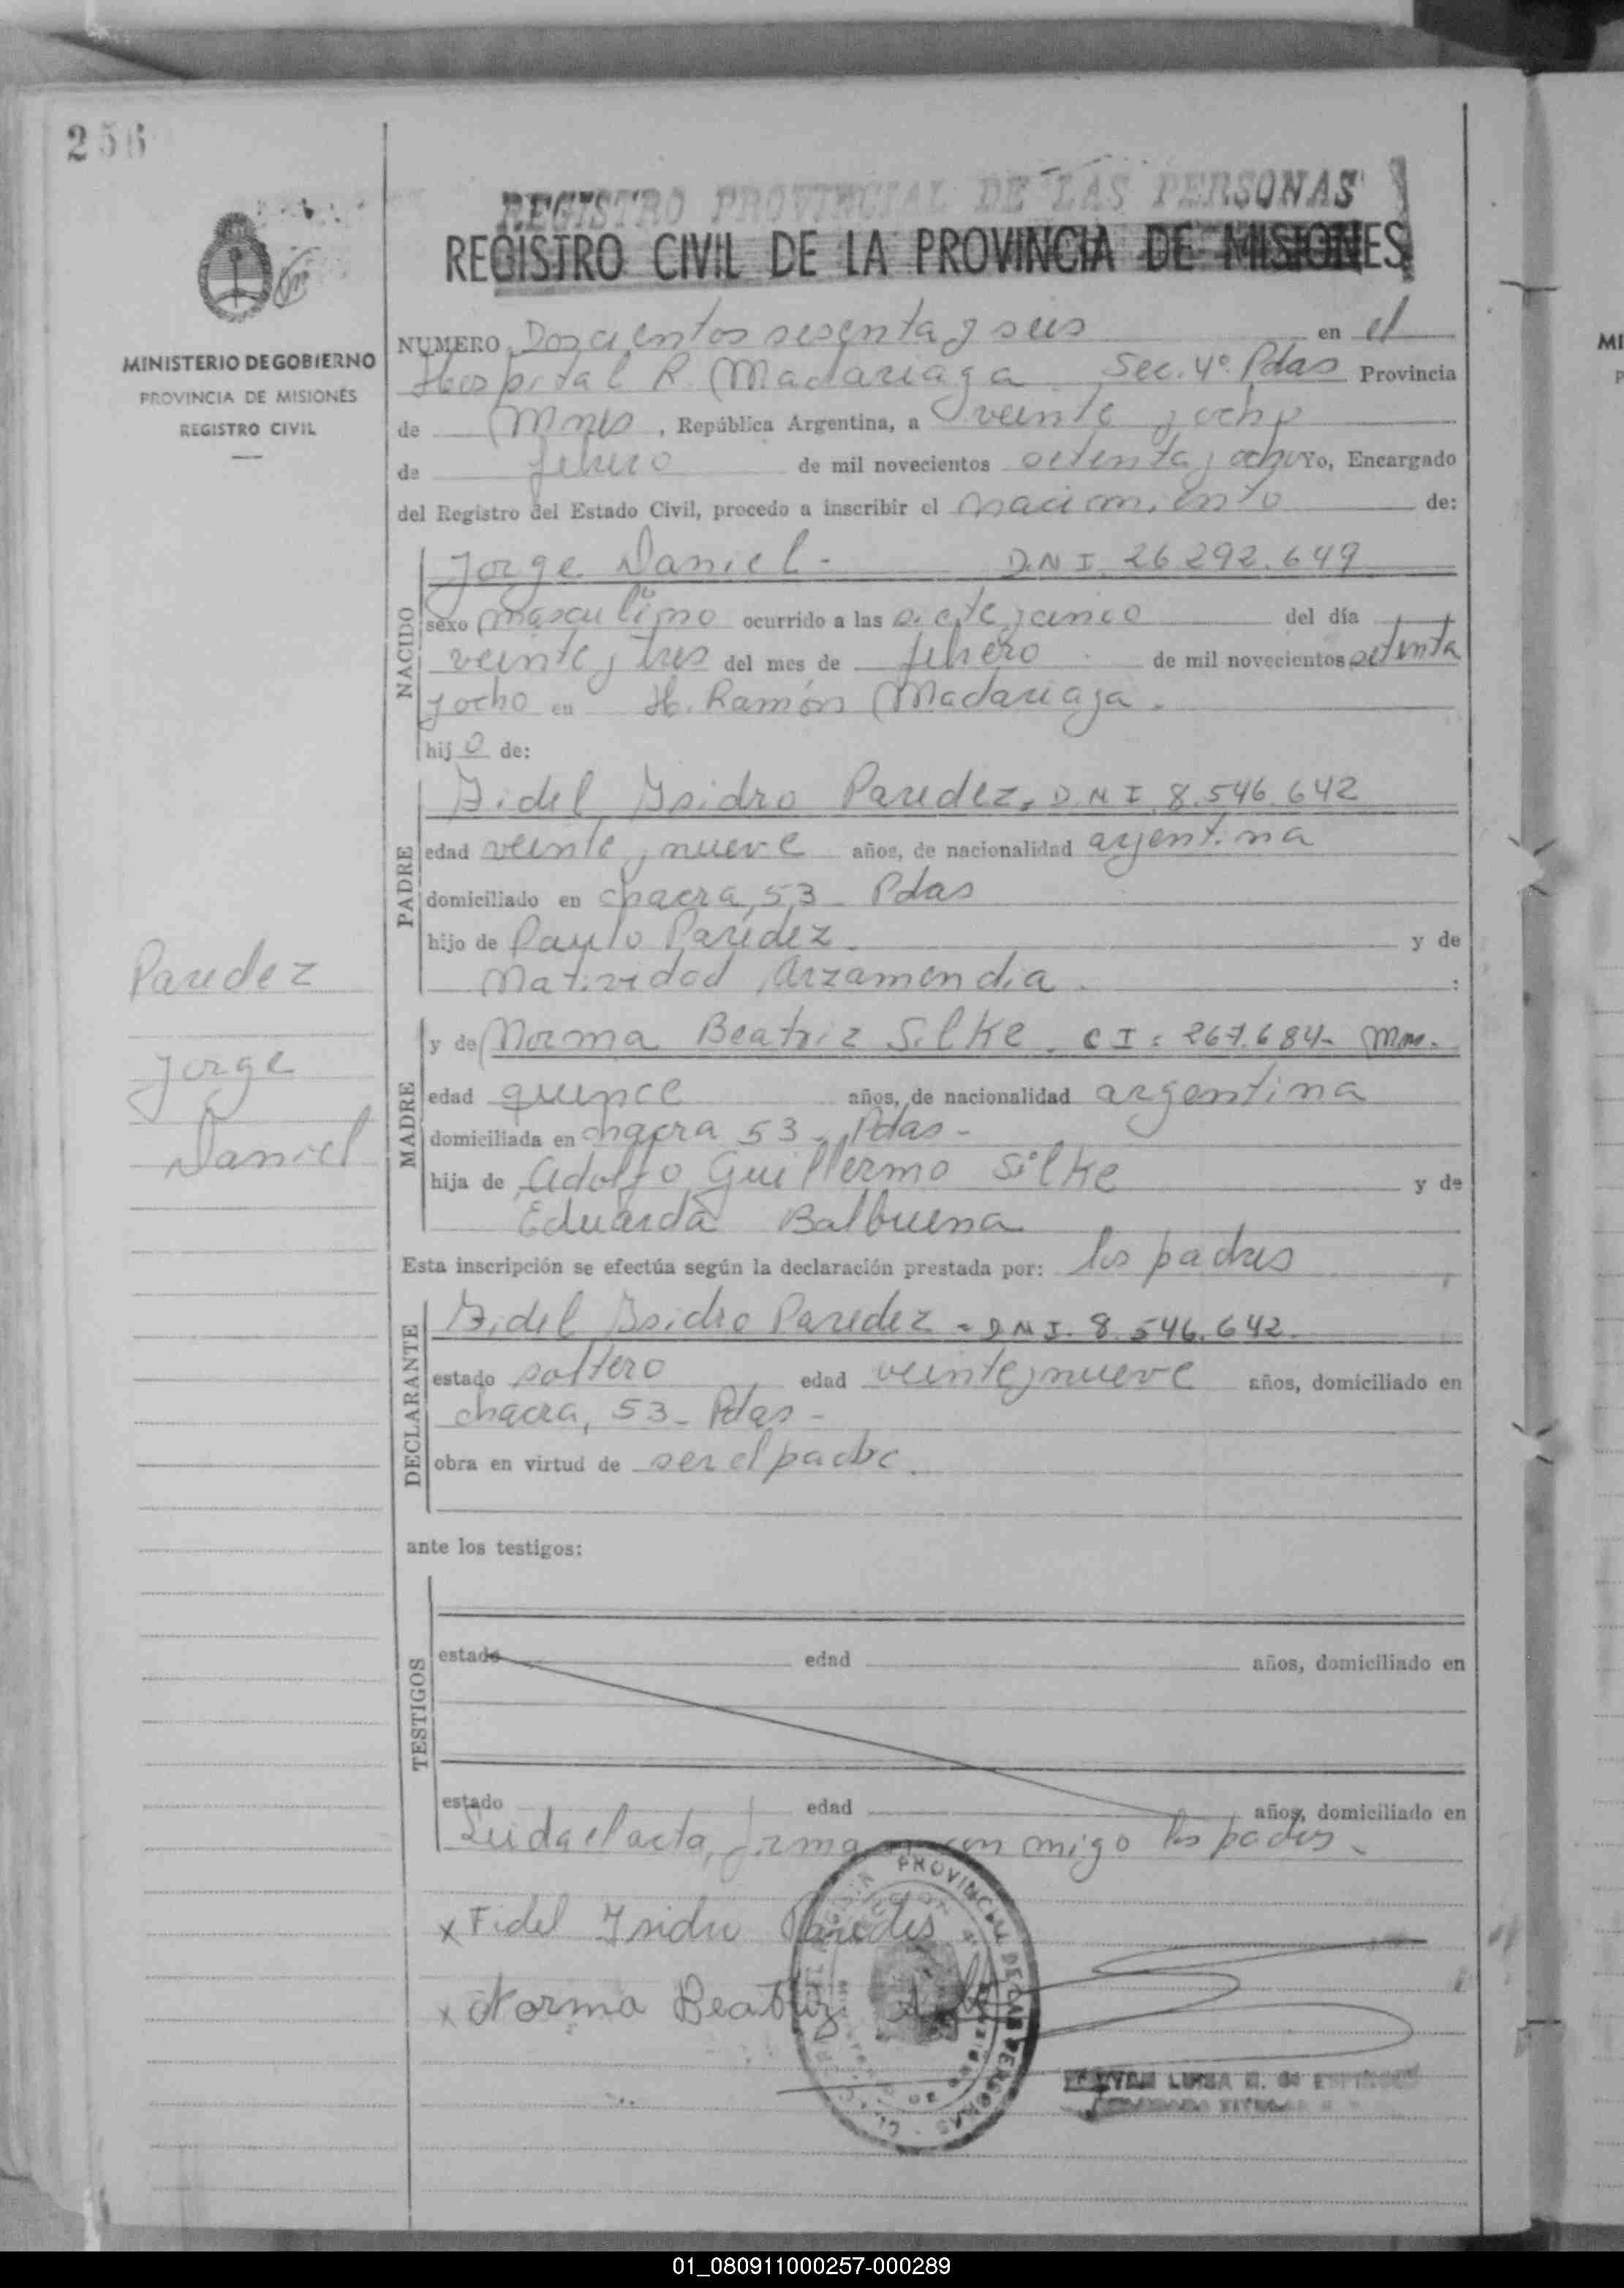 256
REGISTRO PROVINCIAL DE LAS PERSONAS
REGISTRO CIVIL DE LA PROVINCIA DE MISIONES
MINISTERIO DE GOBIERNO
PROVINCIA DE MISIONES
REGISTRO CIVIL
NUMERO Doscientos sesenta y seis en el
Hospital R. Madariaga Sec. 4º Pdas Provincia
de Mnes, República Argentina, a veinte y ocho
de febrero de mil novecientos setenta y ocho Yo, Encargado
del Registro del Estado Civil, procedo a inscribir el nacimiento de:
NACIDO
Jorge Daniel - D.N.I. 26.292.649
sexo masculino ocurrido a las siete y cinco del día
veinte y tres del mes de febrero de mil novecientos setenta
y ocho en H. Ramón Madariaga.
hijo de:
PADRE
Fidel Isidro Paredez, D.N.I. 8.546.642
edad veinte y nueve años, de nacionalidad argentina
domiciliado en chacra, 53 - Pdas
hijo de Paulo Paredez. y de
Natividad Arzamendia. :
Paredez
Jorge
Daniel
MADRE
y de Norma Beatriz Silke. C I: 267.684- Mnes.
edad quince años, de nacionalidad argentina
domiciliada en chacra 53 - Pdas -
hija de Adolfo Guillermo Silke y de
Eduarda Balbuena
Esta inscripción se efectúa según la declaración prestada por: los padres
DECLARANTE
Fidel Isidro Paredez - D.N.I. 8.546.642.
estado soltero edad veinte y nueve años, domiciliado en
chacra, 53 - Pdas -
obra en virtud de ser el padre.
ante los testigos:
TESTIGOS
estado edad años, domiciliado en
estado edad años, domiciliado en
Leida el acta, firman con migo los padres.
x Fidel Isidro Paredes
x Norma Beatriz
PROVINCIAL DE LAS PERSONAS
LUISA
01_080911000257-000289